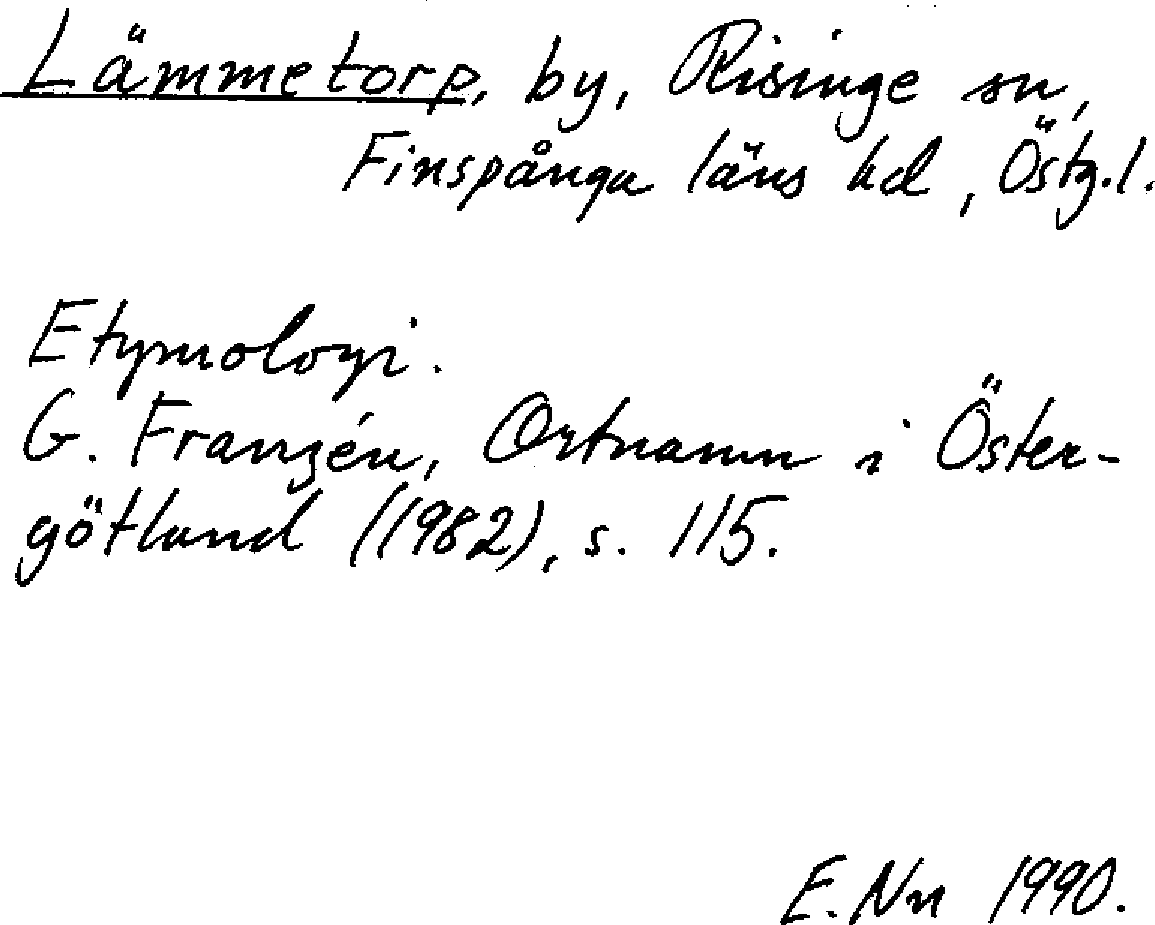 Lämmetorp, by, Risinge sn,
Finspånga läns hd, Östg.l.
Etymologi.
G. Franzén, Ortnamn i Öster-
götland (1982), s. 115.
E. Nn 1990.